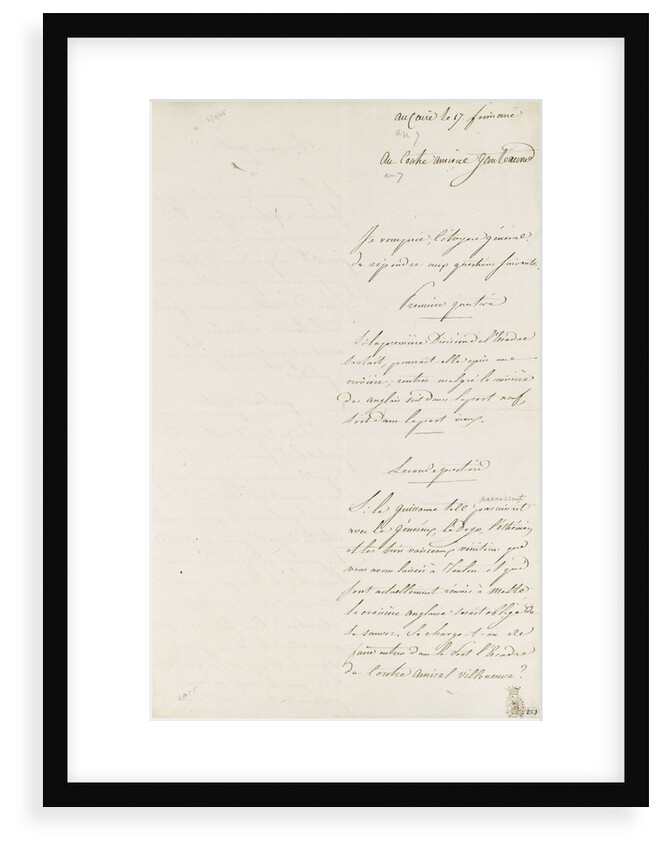 au Caire le 17 frimaire
an 7
Au Contre amiral Ganteaume
an 7
Je vous prie, Citoyen général,
de répondre aux questions suivantes.
Première question
Si la première Division de l'Escadre
sortait, pourrait elle après une
croisière, rentrer malgré la croisière
des anglais soit dans le port neuf,
soit dans le port vieux.
Seconde question
paraissait
Si le Guillaume tell paraissait
avec le Généreux, le Dego, l'Athénien
et les trois vaisseaux vénitiens que
nous avons laissés à Toulon et qui
sont actuellement réunis à Malte
la croisière anglaise serait obligée de
se sauver. Se charge-t-on de
faire entrer dans le Port l'Escadre
du Contre Amiral Villeneuve?
253